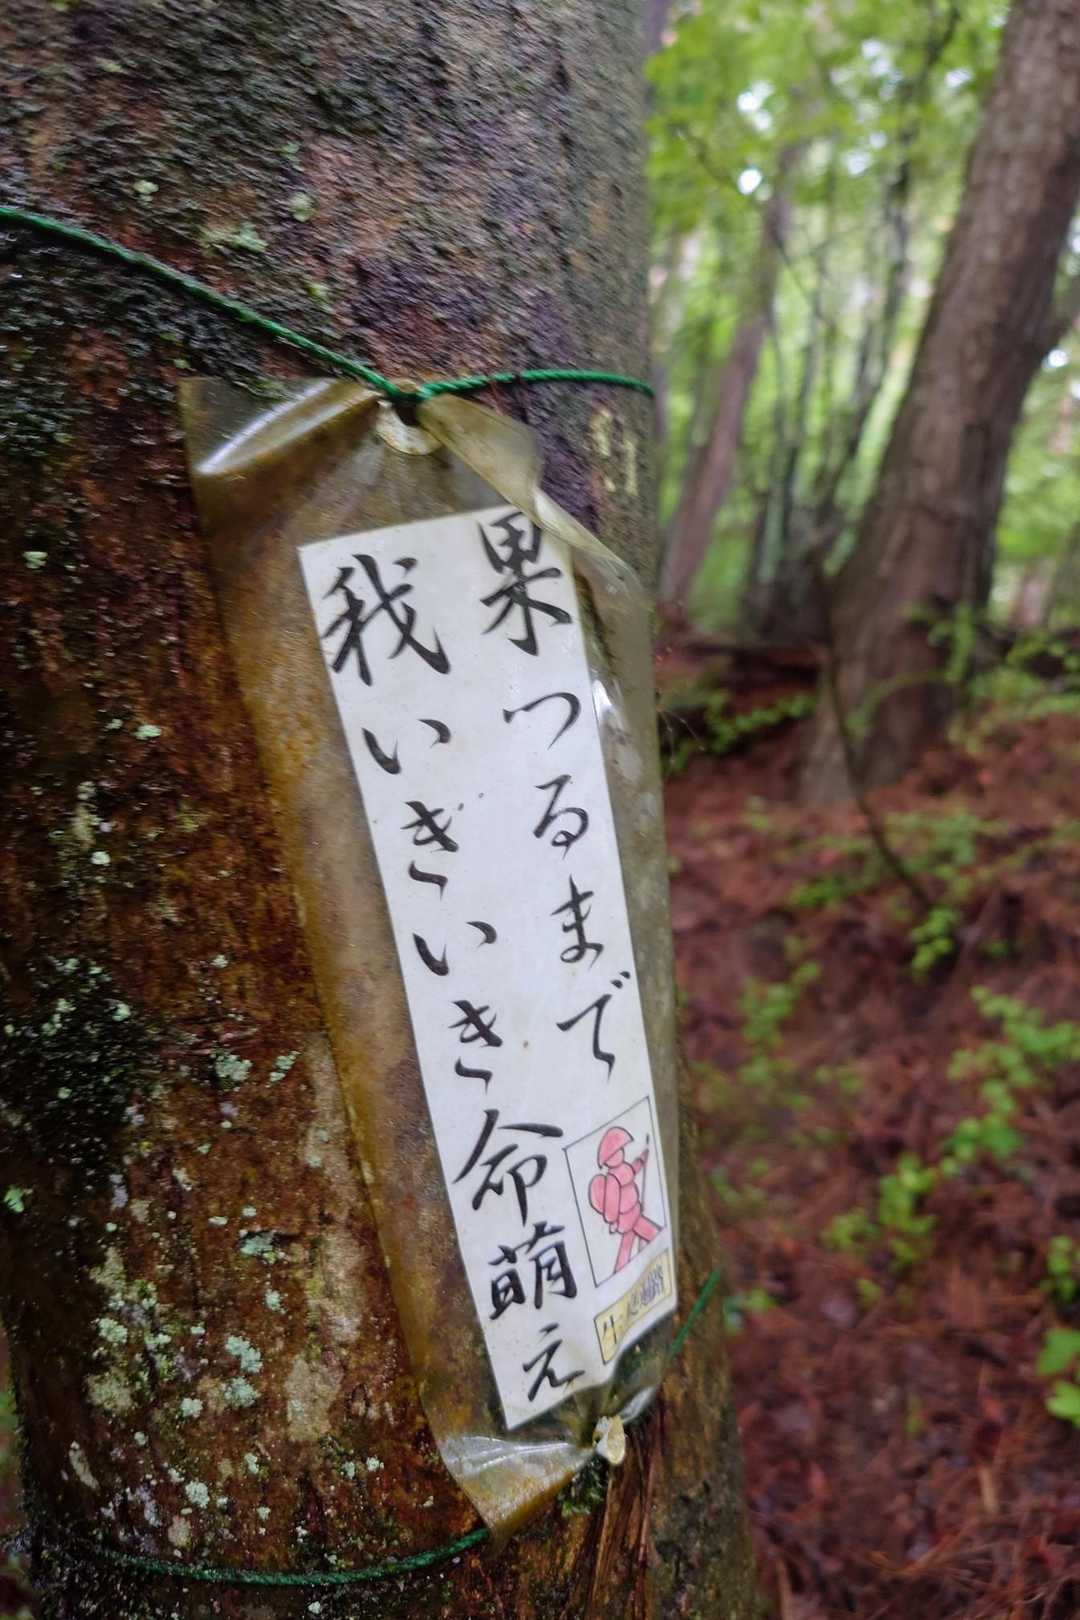 果つるまで
我いきいき命萌え